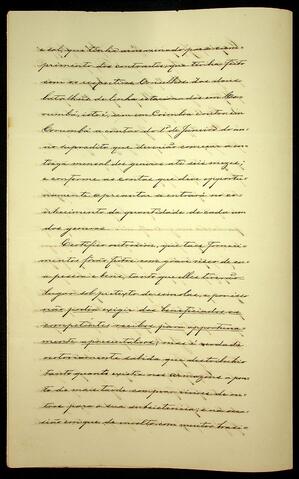 e sal, que tinha armazenado para com-
primento dos contractos, que tinha feito
com os respectivos Conselhos dos dous
batalhões de linha estacionados em Co-
rumbá, isto é, um em Coimbra e outro em
Corumbá a contar do 1º de Janeiro do an-
no supradito que deverião começar a en-
trega mensal dos generos até seis mezes;
e conforme as contas que deve opportu-
namente apresentar e entrará no co-
nhecimento da quantidade de cada um
dos generos
Certifico outrosim, que taes forneci-
mentos forão feitos com gran risco de su-
a pessoa e bens, tanto que elles tiverão
lugar sob pretexto de esmolas, e por isso
não podia exigir dos beneficiados os
competentes recibos para opportuna-
mente apresental-os; mas é verdade
notoriamente sabida que destribuhio
tanto quanto existia nos armazens a pon-
to de mais tarde comprar viveres de ou-
tros para a sua subsistencia; e na oca-
sião em que de envolta com muitos brasi-